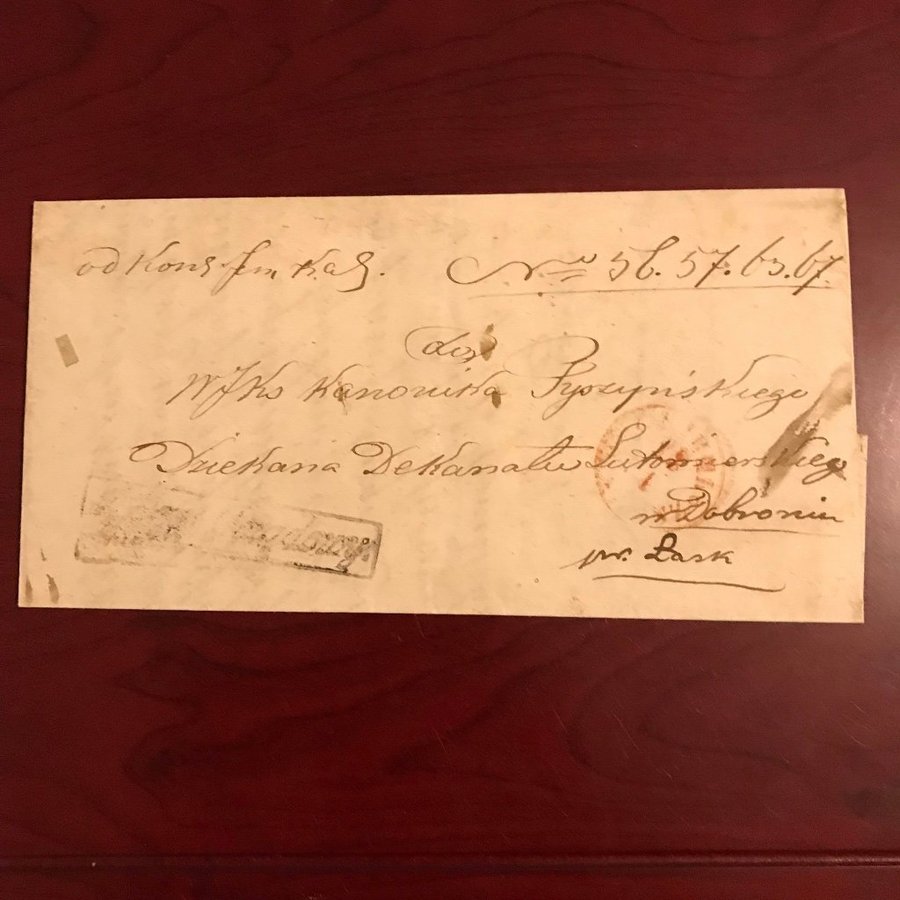 od Kons. Jen. Kal. Nru 56. 57. 63. 67.
do
WJKs Kanonika Pyszyńskiego
Dziekana Dekanatu Lutomierskiego
w Dobroniu
pr. Łask